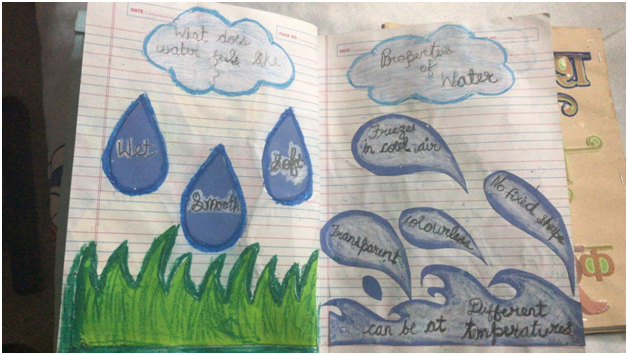 DATE
PAGE NO.
What does
water feels like
?
Wet
Smooth
Soft
DATE
Properties
of
Water
Freezes
in cool air
No fixed shape
Transparent
colourless
Different
can be at tmperatures